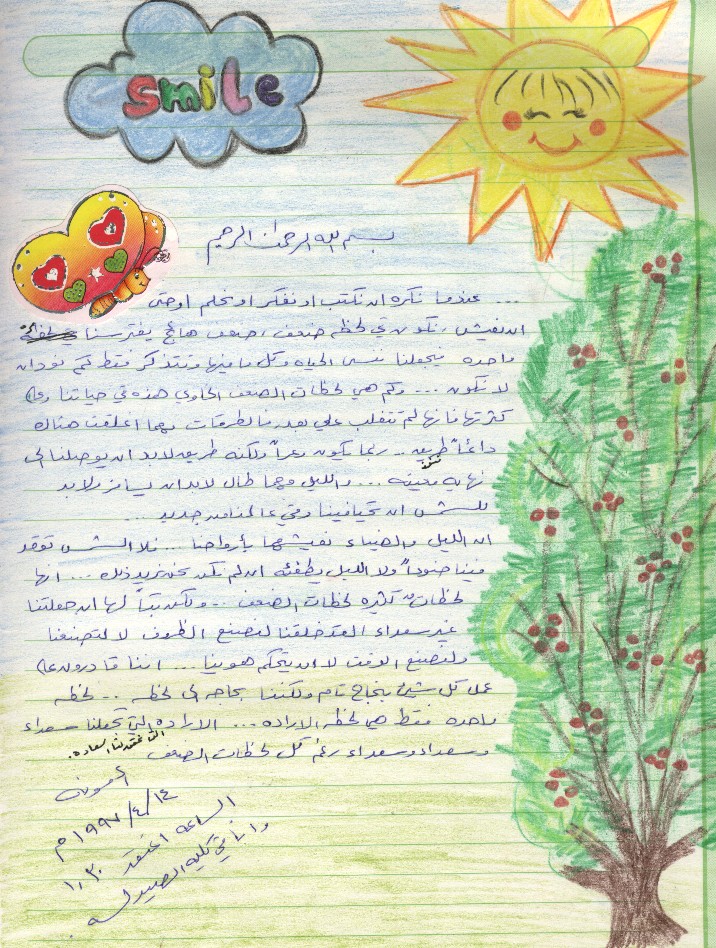 smile
بسم الله الرحمن الرحيم
... عندما نكره ان نكتب او نفكر او نحلم او حتى
ان نعيش، نكون في لحظه ضعف، ضعف هائج يفترسنا لحظه
واحده ويجعلنا ننسى الحياه وكل ما فيها ونتذكر فقط كم نود ان
لا نكون ... وكم هي لحظات الضعف الحاوي هذه في حياتنا وعلى
كثرتها فانها لم تتغلب على بعد فالطرقات مهما اغلقت هناك
دائماً طريق .. ربما يكون وعراً ولكنه طريق لابد ان يوصلنا الى
نهايه معينه ... والليل مهما طال لابد ان يسافر ولابد
للشمس ان تحيا فينا وفي عالمنا من جديد ...
ان الليل والضياء نعيشهما بأرواحنا ... فلا الشمس توقد
فينا ضوءاً ولا الليل يطفئه ان لم نكن نحن نريد ذلك ... انها
لحظات كثيره لحظات الضعف .. ولكن تباً لها ان جعلتنا
غير سعداء لقد خلقنا لنصنع الظروف لا لتصنعنا
ولنصنع الوقت لا ان يتحكم هو بنا ... اننا قادرون على
عمل كل شيئ بنجاح تام ولكننا بحاجه الى لحظه .. لحظه
واحده فقط هي لحظه الاراده ... الاراده التي تجعلنا سعداء
وسعداء وسعداء رغم كل لحظات الضعف التي تفقدنا السعاده.
١٤/٤/١٩٩٧م
الساعه اعتقد ١,٣٠
وانا في كليه الصيدله